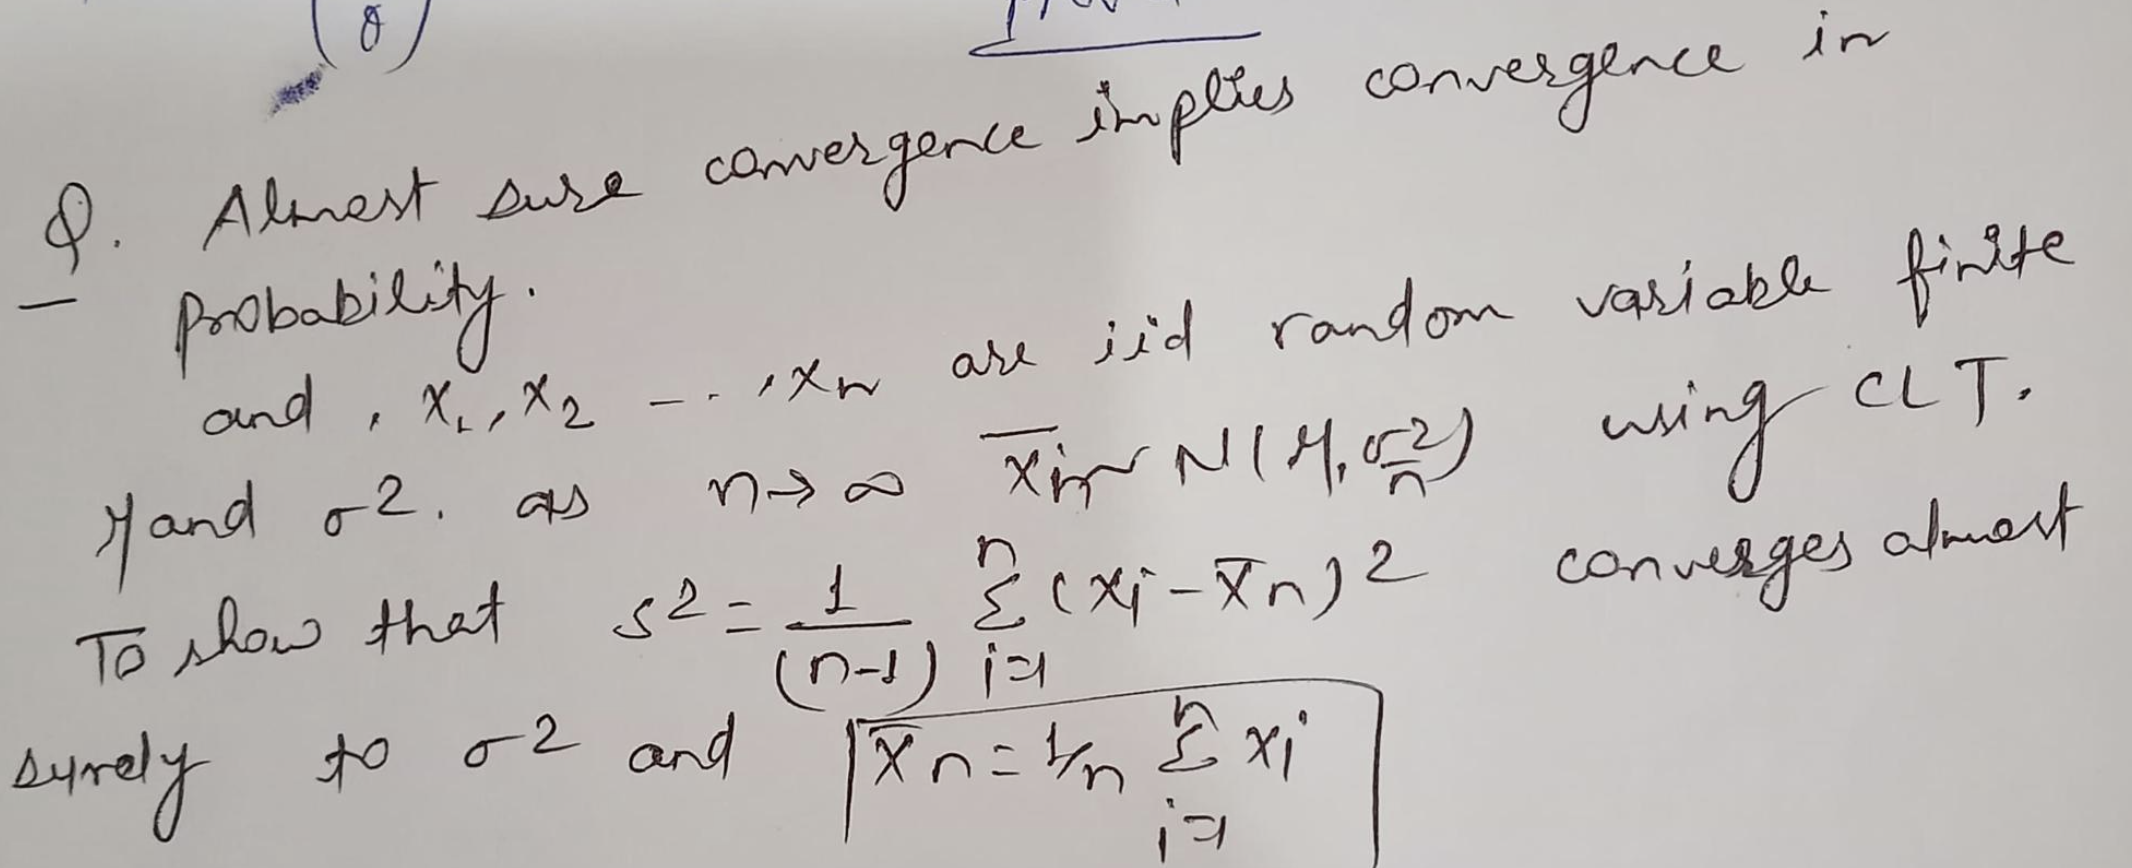 θ
Q. Almost sure convergence implies convergence in
probability.
and , X₁, X₂ --., Xn are iid random variable finite
μ and σ2. as n→∞ X̄n ~ N(μ, σ2/n) using CLT.
To show that s2 = 1/(n-1) Σ i=1 n (Xi - X̄n)2 converges almost
surely to σ2 and X̄n = 1/n Σ i=1 n Xi